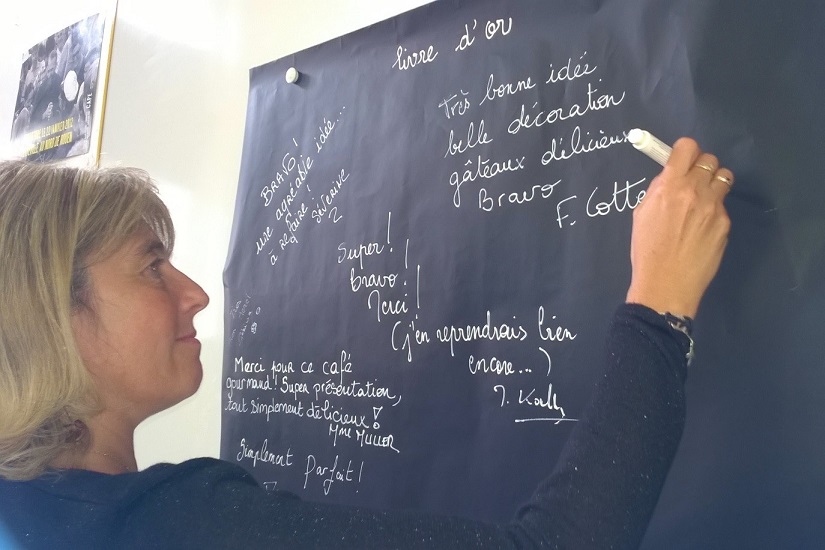 livre d'or
Très bonne idée
belle décoration
gâteaux délicieux
Bravo
F. Cotte
BRAVO!
une agréable idée...
à refaire!
Séverine
Super!
bravo!
Merci!
(j'en reprendrais bien
encore...)
Merci pour ce café
gourmand! Super présentation,
tout simplement délicieux!
Mme MULLER
Simplement Parfait!